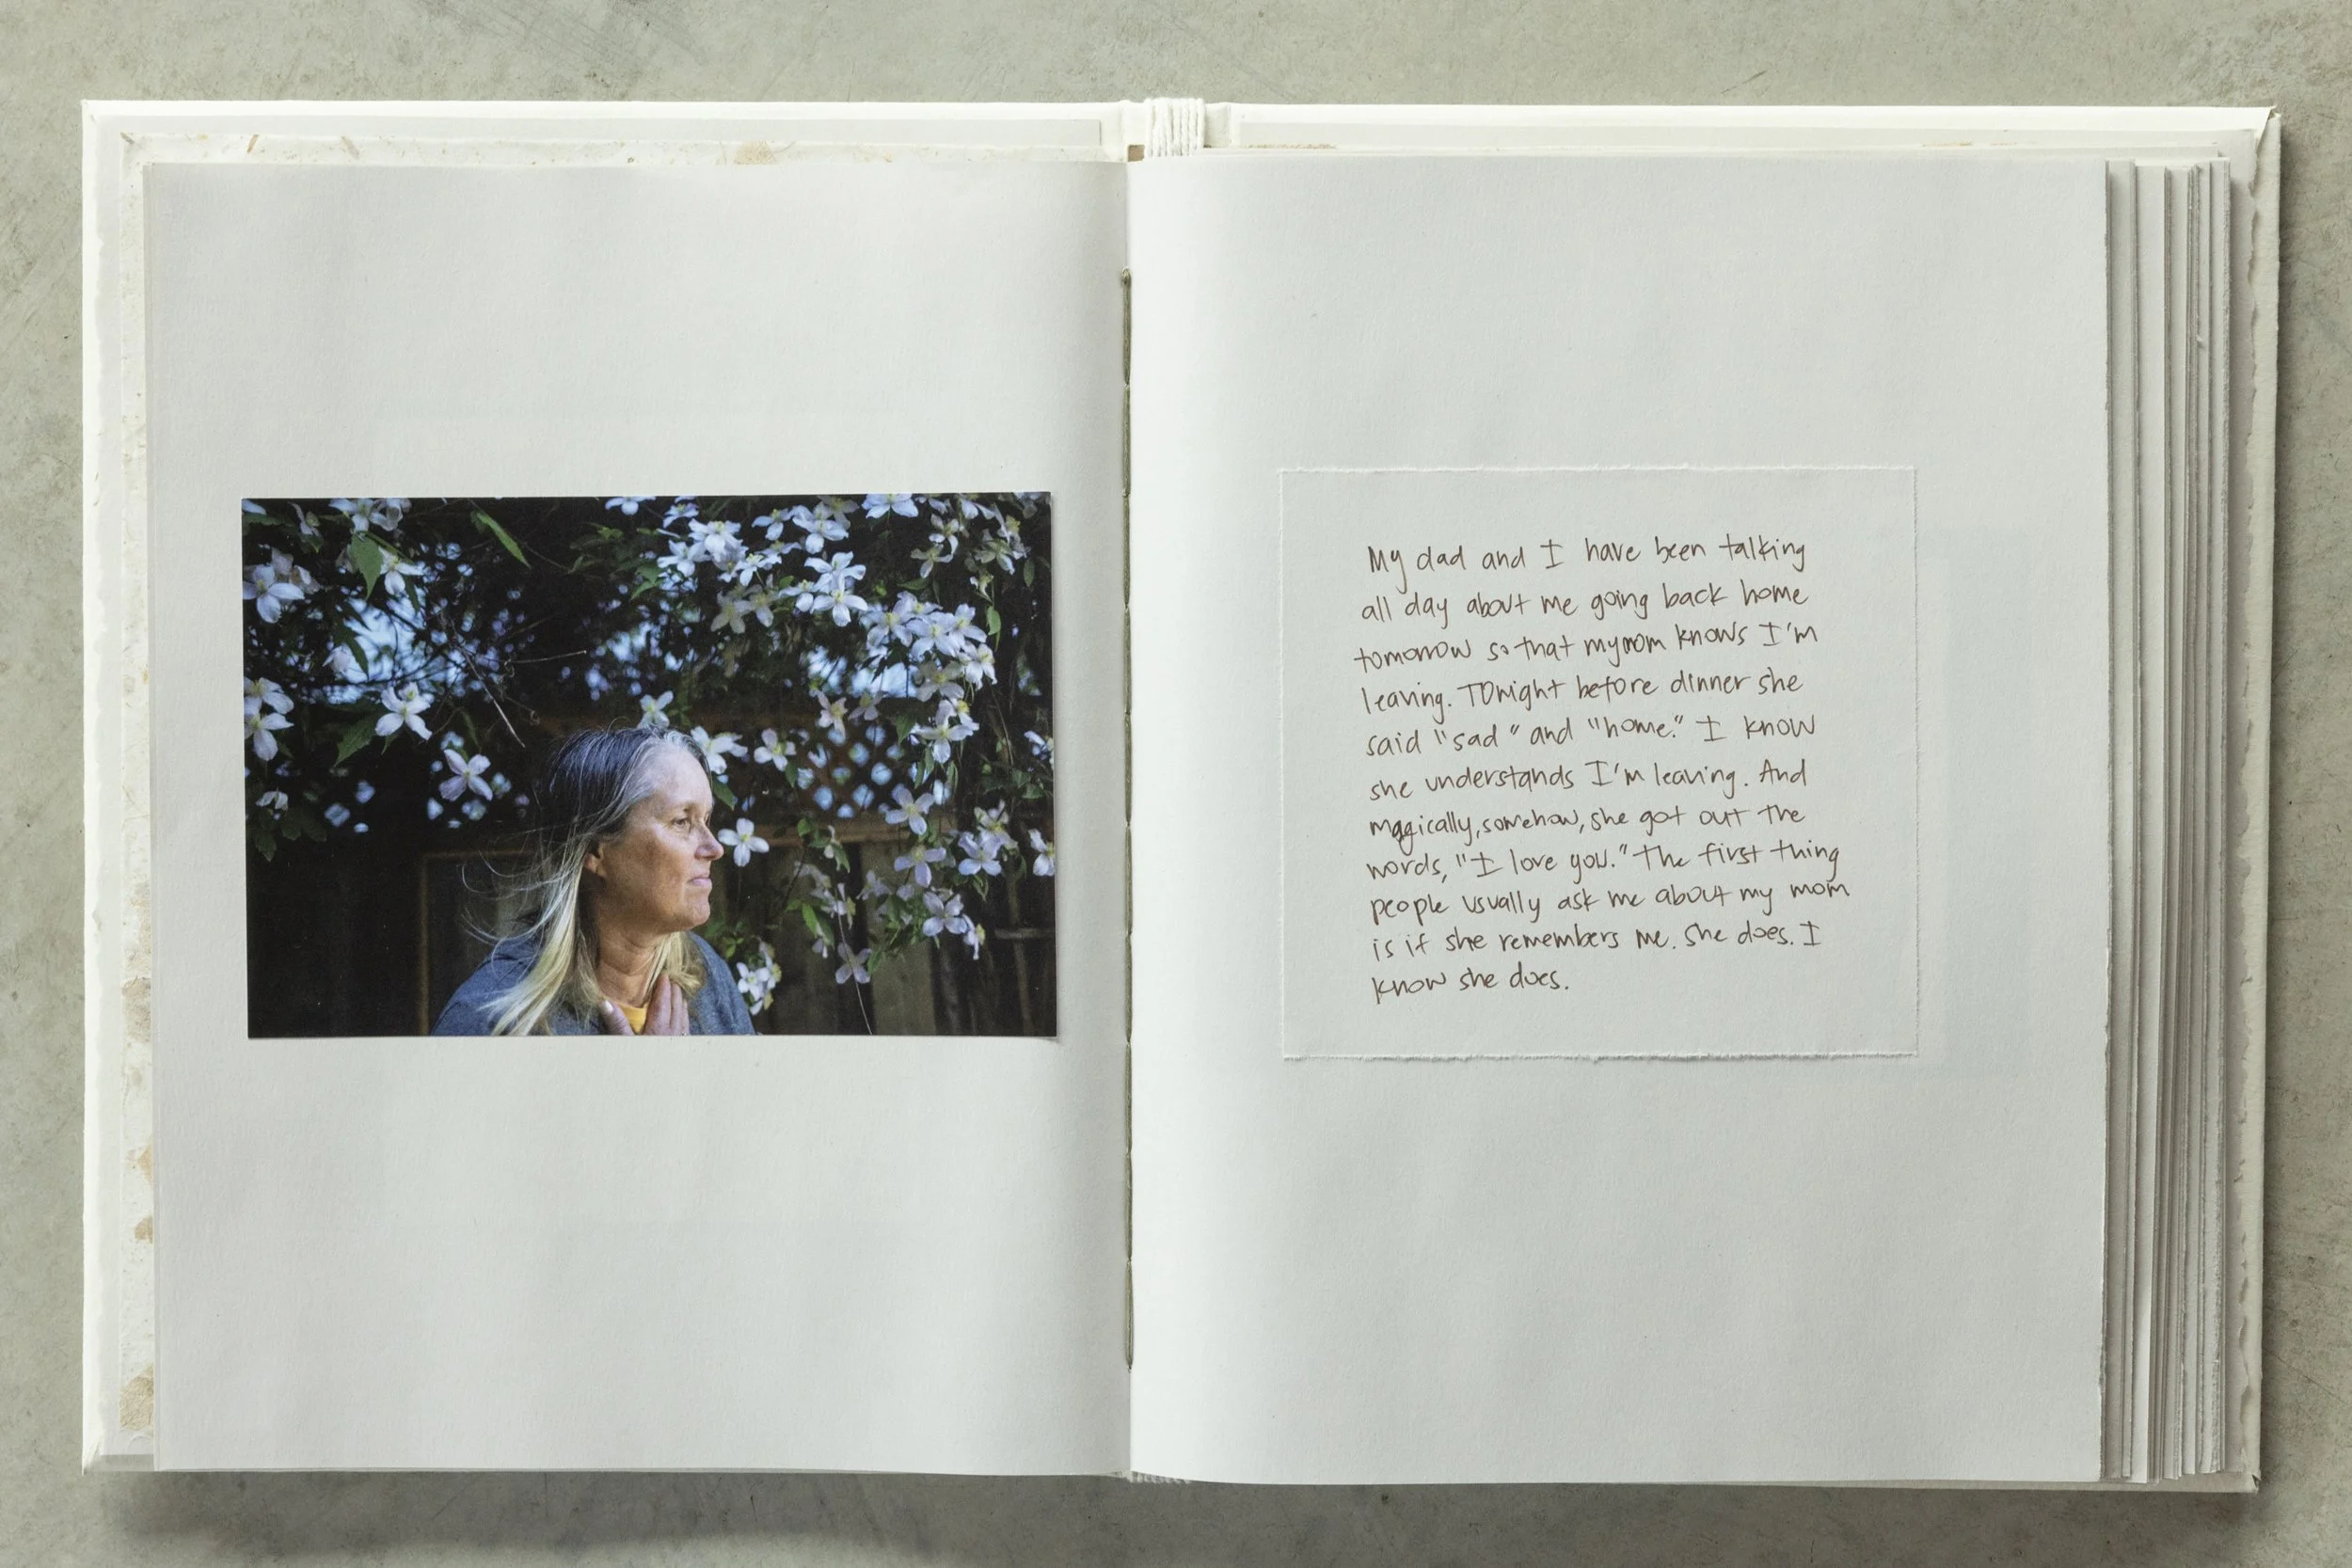 My dad and I have been talking
all day about me going back home
tomorrow so that my mom knows I'm
leaving. Tonight before dinner she
said "sad" and "home." I know
she understands I'm leaving. And
magically, somehow, she got out the
words, "I love you." The first thing
people usually ask me about my mom
is if she remembers me. She does. I
know she does.